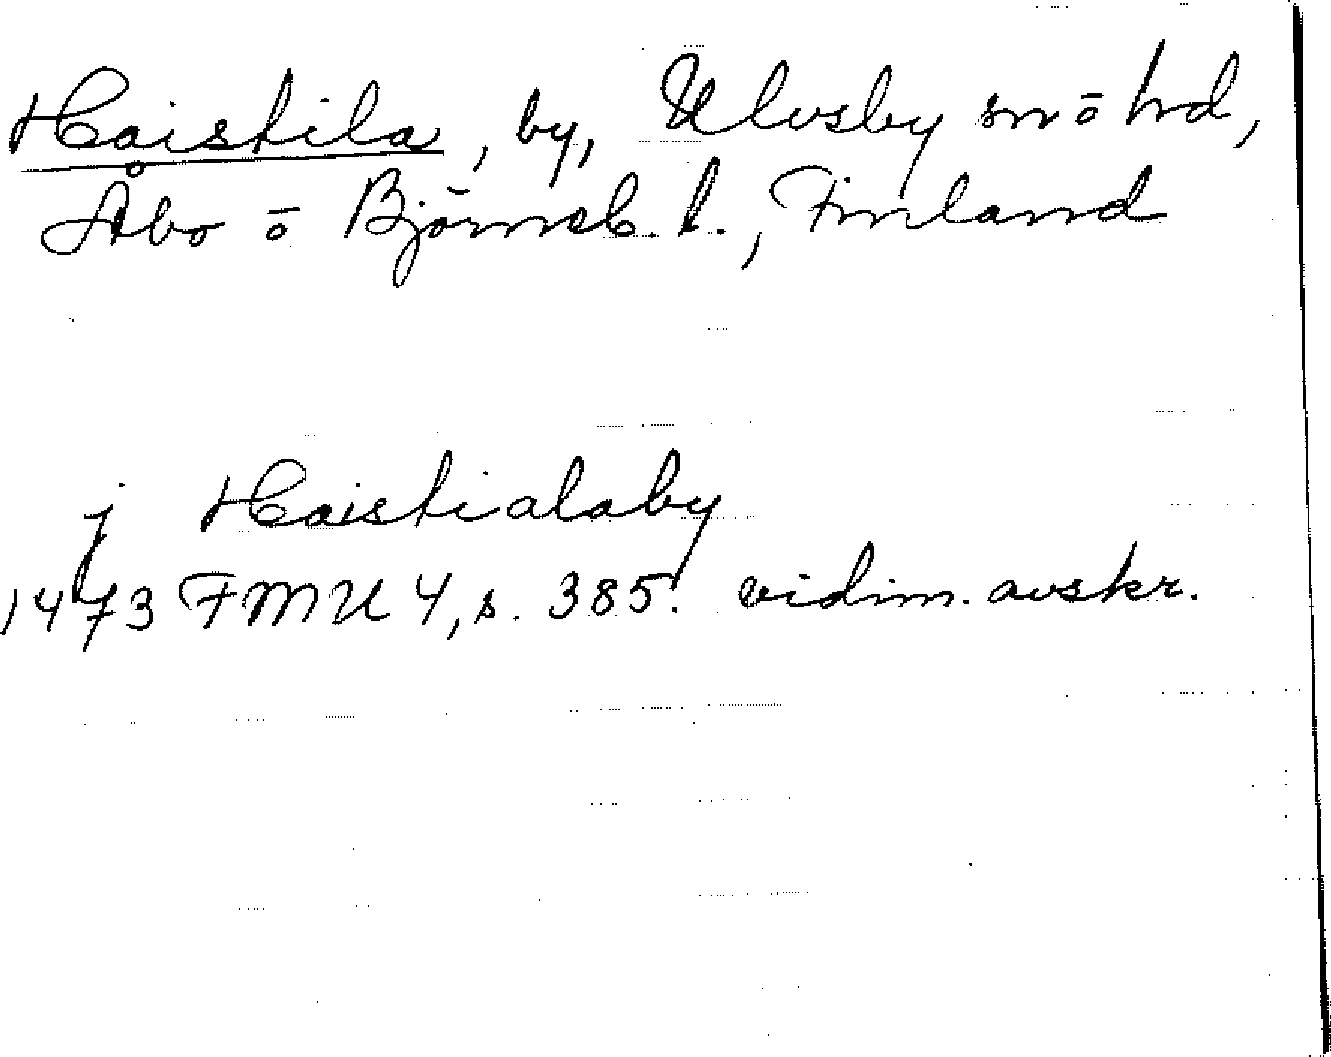 Haistila, by, Ulvsby sn ō hd,
Åbo ō Björneb. l., Finland
j Haistialaby
1473 FMU 4, s. 385. vidim. avskr.